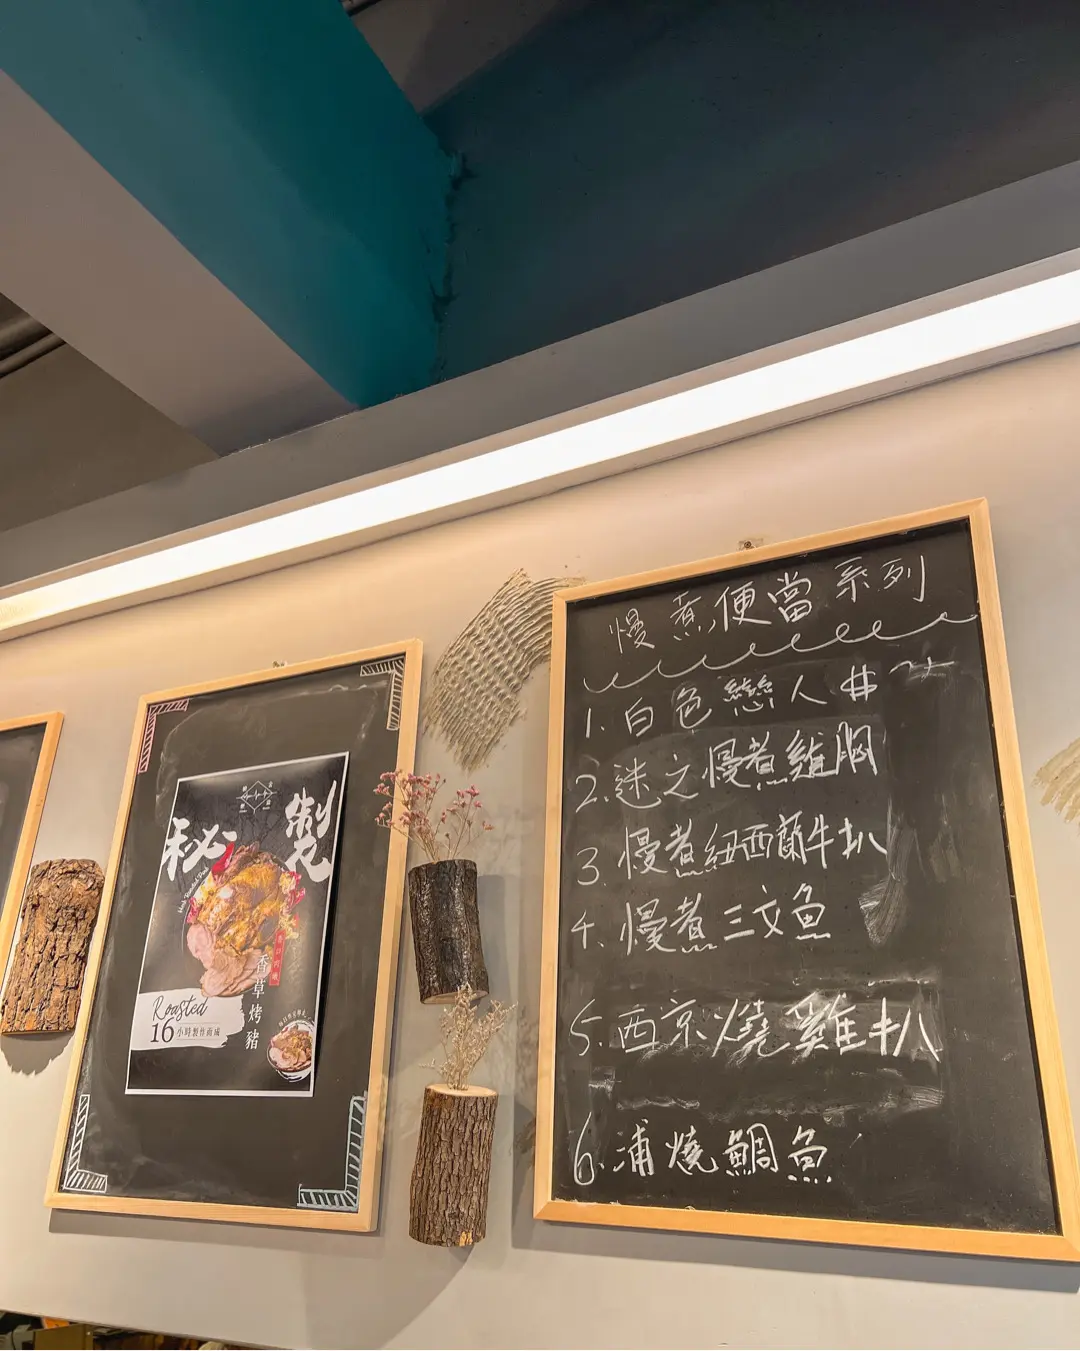 秘製
香草烤豬
Roasted
16小時製作而成
慢煮便當系列
1. 白色戀人 #
2. 迷之慢煮雞胸
3. 慢煮紐西蘭牛扒
4. 慢煮三文魚
5. 西京燒雞扒
6. 浦燒鯛魚